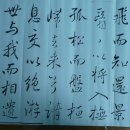 飛而知還景
翳〻以將入撫
孤松而盤桓
歸去来兮請
息交以絕游
世与我而相遺